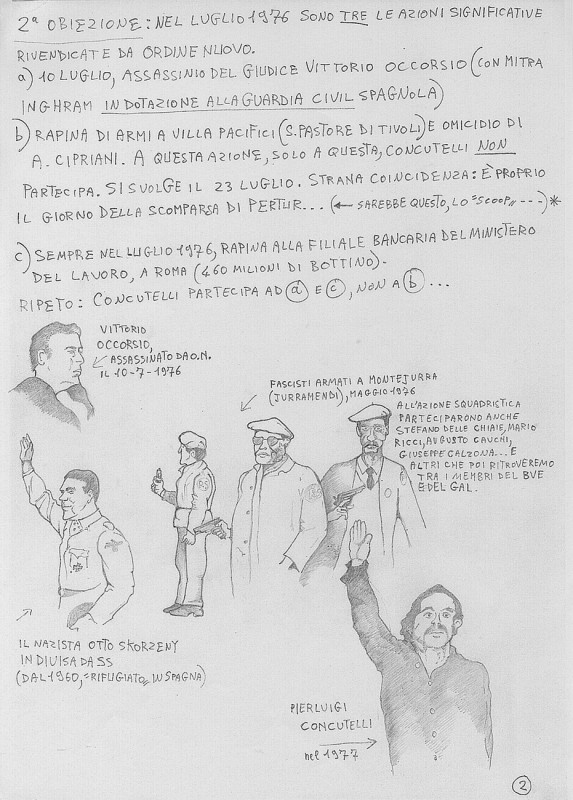 2ª OBIEZIONE: NEL LUGLIO 1976 SONO TRE LE AZIONI SIGNIFICATIVE
RIVENDICATE DA ORDINE NUOVO.
a) 10 LUGLIO, ASSASSINIO DEL GIUDICE VITTORIO OCCORSIO (CON MITRA
INGHRAM IN DOTAZIONE ALLA GUARDIA CIVIL SPAGNOLA)
b) RAPINA DI ARMI A VILLA PACIFICI (S. PASTORE DI TIVOLI) E OMICIDIO DI
A. CIPRIANI. A QUESTA AZIONE, SOLO A QUESTA, CONCUTELLI NON
PARTECIPA. SI SVOLGE IL 23 LUGLIO. STRANA COINCIDENZA: È PROPRIO
IL GIORNO DELLA SCOMPARSA DI PERTUR... (← SAREBBE QUESTO, LO "SCOOP" ---)*
c) SEMPRE NEL LUGLIO 1976, RAPINA ALLA FILIALE BANCARIA DEL MINISTERO
DEL LAVORO, A ROMA (460 MILIONI DI BOTTINO).
RIPETO: CONCUTELLI PARTECIPA AD a E c, NON A b...
VITTORIO
OCCORSIO,
ASSASSINATO DA O.N.
IL 10-7-1976
FASCISTI ARMATI A MONTEJURRA
(JURRAMENDI), MAGGIO 1976
ALL'AZIONE SQUADRISTICA
PARTECIPARONO ANCHE
STEFANO DELLE CHIAIE, MARIO
RICCI, AUGUSTO CAUCHI,
GIUSEPPE CALZONA... E
ALTRI CHE POI RITROVEREMO
TRA I MEMBRI DEL BVE
E DEL GAL.
IL NAZISTA OTTO SKORZENY
IN DIVISA DA SS
(DAL 1960, "RIFUGIATO" IN SPAGNA)
PIERLUIGI
CONCUTELLI
nel 1977
2